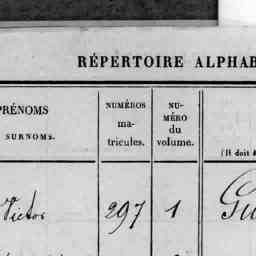 RÉPERTOIRE ALPHAB
PRÉNOMS
SURNOMS.
NUMÉROS
ma-
tricules.
NU-
MÉRO
du
volume.
(Il doit ê
Victor 297 1 Gu